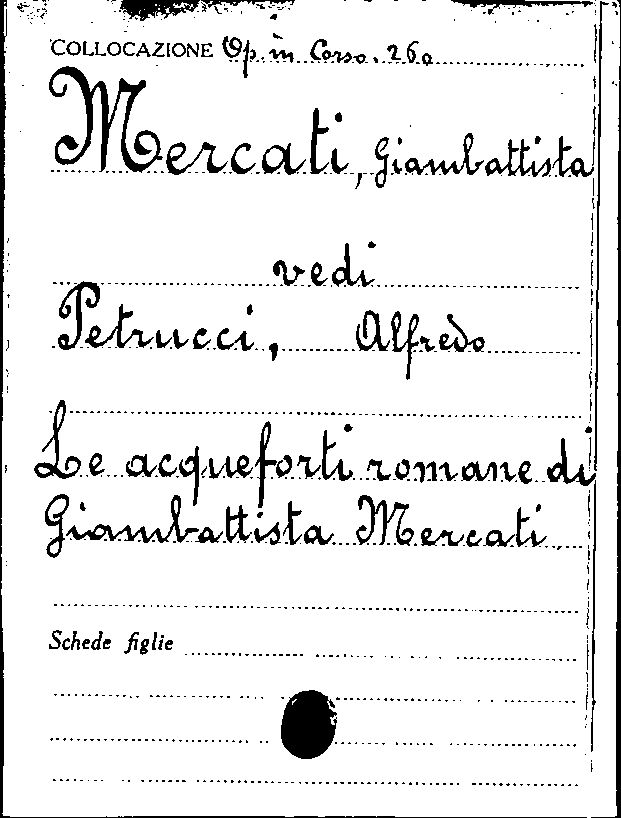 COLLOCAZIONE Op. in Corso. 260
Mercati, Giambattista
vedi
Petrucci, Alfredo
Le acqueforti romane di
Giambattista Mercati
Schede figlie